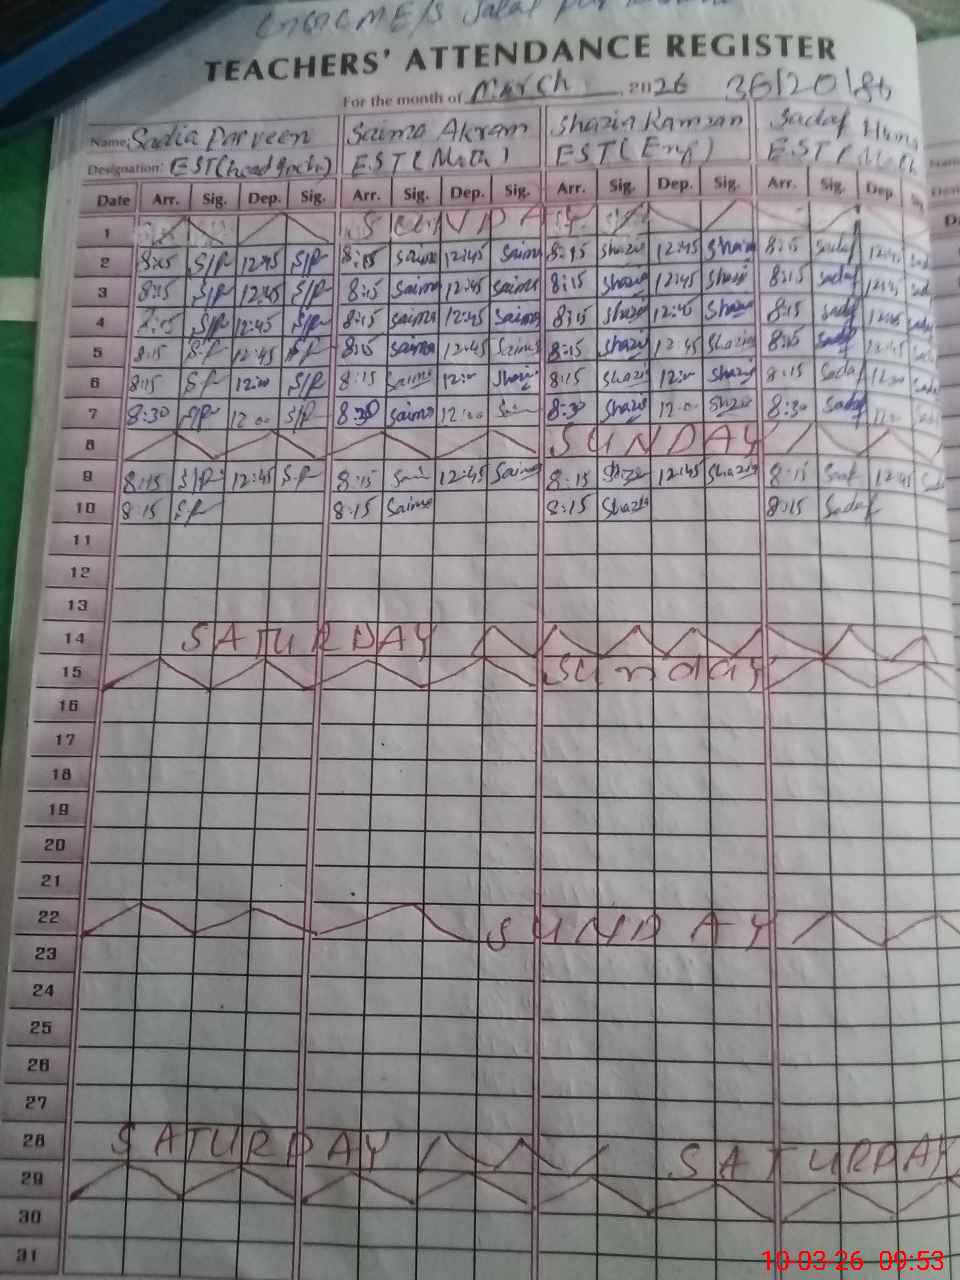 TEACHERS' ATTENDANCE REGISTER
For the month of March 2026 36120186
Name: Sadia Parveen Saima Akram Shazia Ramzan Sadaf
Designation: EST (head Teach) EST (Math) EST (Eng) EST (Math
Date Arr. Sig. Dep. Sig. Arr. Sig. Dep. Sig. Arr. Sig. Dep. Sig. Arr. Sig. Dep.
1 SUNDAY
2 8:15 S/P 12:45 S/P 8:15 Saima 12:45 Saima 8:15 Shazia 12:45 Shazia 8:15 Sadaf 12:45 Sad
3 8:15 S/P 12:45 S/P 8:15 Saima 12:45 Saima 8:15 Shazia 12:45 Shazia 8:15 Sadaf 12:45 Sad
4 8:15 S/P 12:45 S/P 8:15 Saima 12:45 Saima 8:15 Shazia 12:45 Shazia 8:15 Sadaf 12:45 Sada
5 8:15 S.P 12:45 S.P 8:15 Saima 12:45 Saima 8:15 Shazia 12:45 Shazia 8:15 Sadaf 12:45 Sada
6 8:15 S.P 12:00 S/P 8:15 Saima 12:00 Shazi 8:15 Shazia 12:00 Shazia 8:15 Sadaf 12:00 Sada
7 8:30 S/P 12:00 S/P 8:30 Saima 12:00 Saim 8:30 Shazia 12:00 Shazia 8:30 Sadaf 12:00 Sada
8 SUNDAY
9 8:15 S/P 12:45 S.P 8:15 Saim 12:45 Saima 8:15 Shazia 12:45 Shazia 8:15 Sadaf 12:45 Sada
10 8:15 S.P 8:15 Saima 8:15 Shazia 8:15 Sadaf
11
12
13
14 SATURDAY
15 Sunday
16
17
18
19
20
21
22 SUNDAY
23
24
25
26
27
28 SATURDAY SATURDAY
29
30
31
10 03 26 09:53